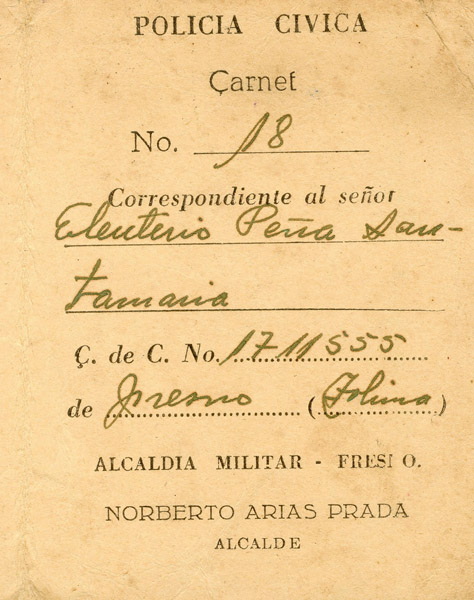 POLICIA CIVICA
Çarnet
No. 18
Correspondiente al señor
Eleuterio Peña San-
tamaria
Ç. de C. No. 1711555
de Fresno (Tolima)
ALCALDIA MILITAR - FRESNO.
NORBERTO ARIAS PRADA
ALCALDE